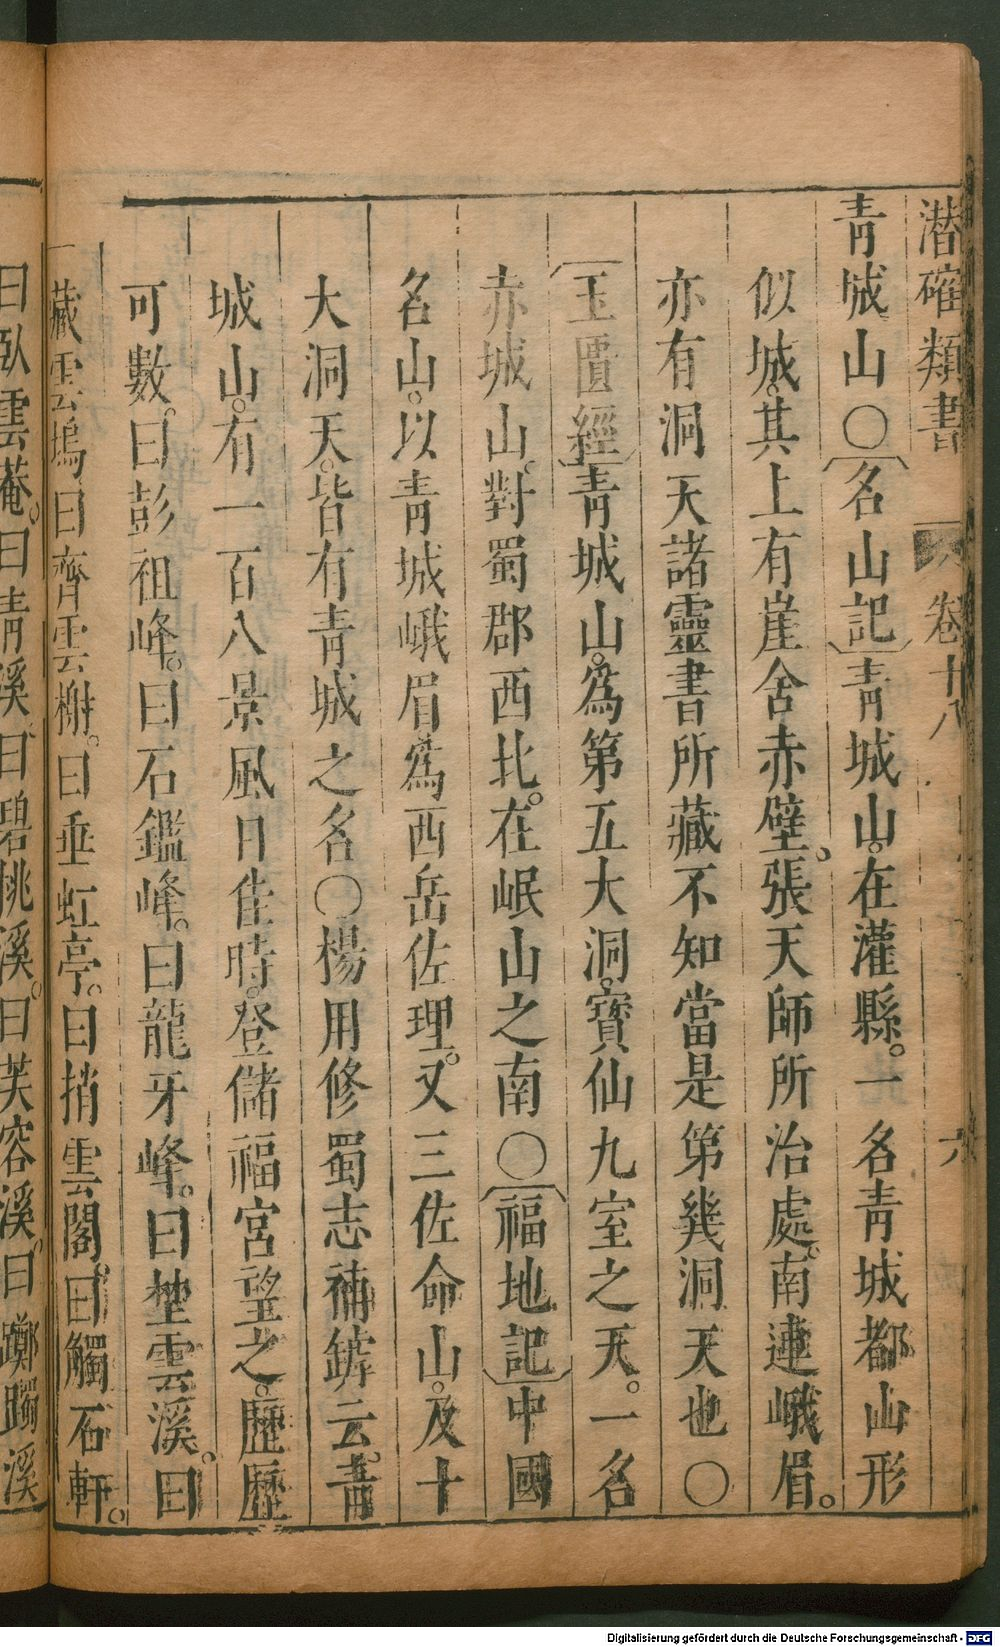 潛確類書 卷十八 六
青城山○〔名山記〕青城山。在灌縣。一名青城都山形
似城。其上有崖舍赤壁。張天師所治處。南連峨眉。
亦有洞天諸靈書所藏不知當是第幾洞天也○
〔玉匱經〕青城山。爲第五大洞。寶仙九室之天。一名
赤城山。對蜀郡西北。在岷山之南○〔福地記〕中國
名山。以青城峨眉爲西岳佐理。又三佐命山。及十
大洞天。皆有青城之名○楊用修蜀志補罅云。青
城山。有一百八景風日佳時。登儲福宮望之。歷歷
可數。曰彭祖峰。曰石鑑峰。曰龍牙峰。曰埜雲溪。曰
藏雲塢曰齊雲榭。曰垂虹亭。曰捎雲閣。曰觸石軒。
曰臥雲菴。曰青溪。曰碧桃溪。曰芙容溪。曰躑躅溪
Digitalisierung gefördert durch die Deutsche Forschungsgemeinschaft - DFG